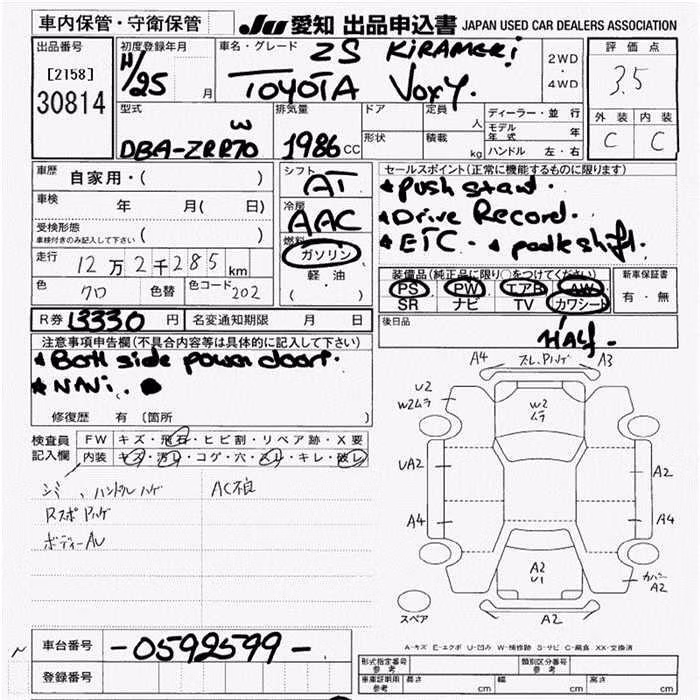 車内保管・守衛保管
JU 愛知 出品申込書 JAPAN USED CAR DEALERS ASSOCIATION
出品番号
[2158]
30814
初度登録年月
H/25 月
車名・グレード
ZS KIRAMEKi
TOYOTA VoxY.
2WD
・
4WD
評価点
3.5
外装 内装
C C
型式
DBA-ZRR70 W
排気量
1986 CC
ドア
形状
定員 人
積載 kg
ディーラー・並行
モデル年式 年
ハンドル 左・右
車歴 自家用・( )
車検 年 月( 日)
受検形態
車検付きのみ記入して下さい ( )
走行 12万2千285 km
色 クロ 色替 色コード 202
シフト AT
冷房 AAC
燃料
ガソリン
軽・油
( )
セールスポイント(正常に機能するものに限ります)
★Push start.
★Drive Record.
★ETC. ★
装備品(純正品に限り○をつけてください)
PS PW エアB AW
SR ナビ TV カワシート
新車保証書
有・無
R券 13330 円 名変通知期限 月 日
後日品
HALF.
注意事項申告欄(不具合内容等は具体的に記入して下さい)
★Both side power door.
★NAVi.
修復歴 有 〔箇所 〕
検査員
記入欄
FW キズ・飛石・ヒビ割・リペア跡・X要
内装 キズ・汚レ・コゲ・穴・スレ・キレ・破レ
シミ、ハンドルハゲ AC不良
Rスポ Pハゲ
ボディーAU
A4 スレ、Pハゲ A3
U2
W2ムラ
W2
ムラ
UA2
A2
A4
A4
A2
U1
カバー
A2
スペア
A2
A-キズ E-エクボ U-凹み W-補修跡 S-サビ C-腐食 XX-交換済
車台番号 -0592599-
登録番号
型式指定番号 参考
類別区分番号 参考
車庫証明用 参考 長さ cm 幅 cm 高さ cm